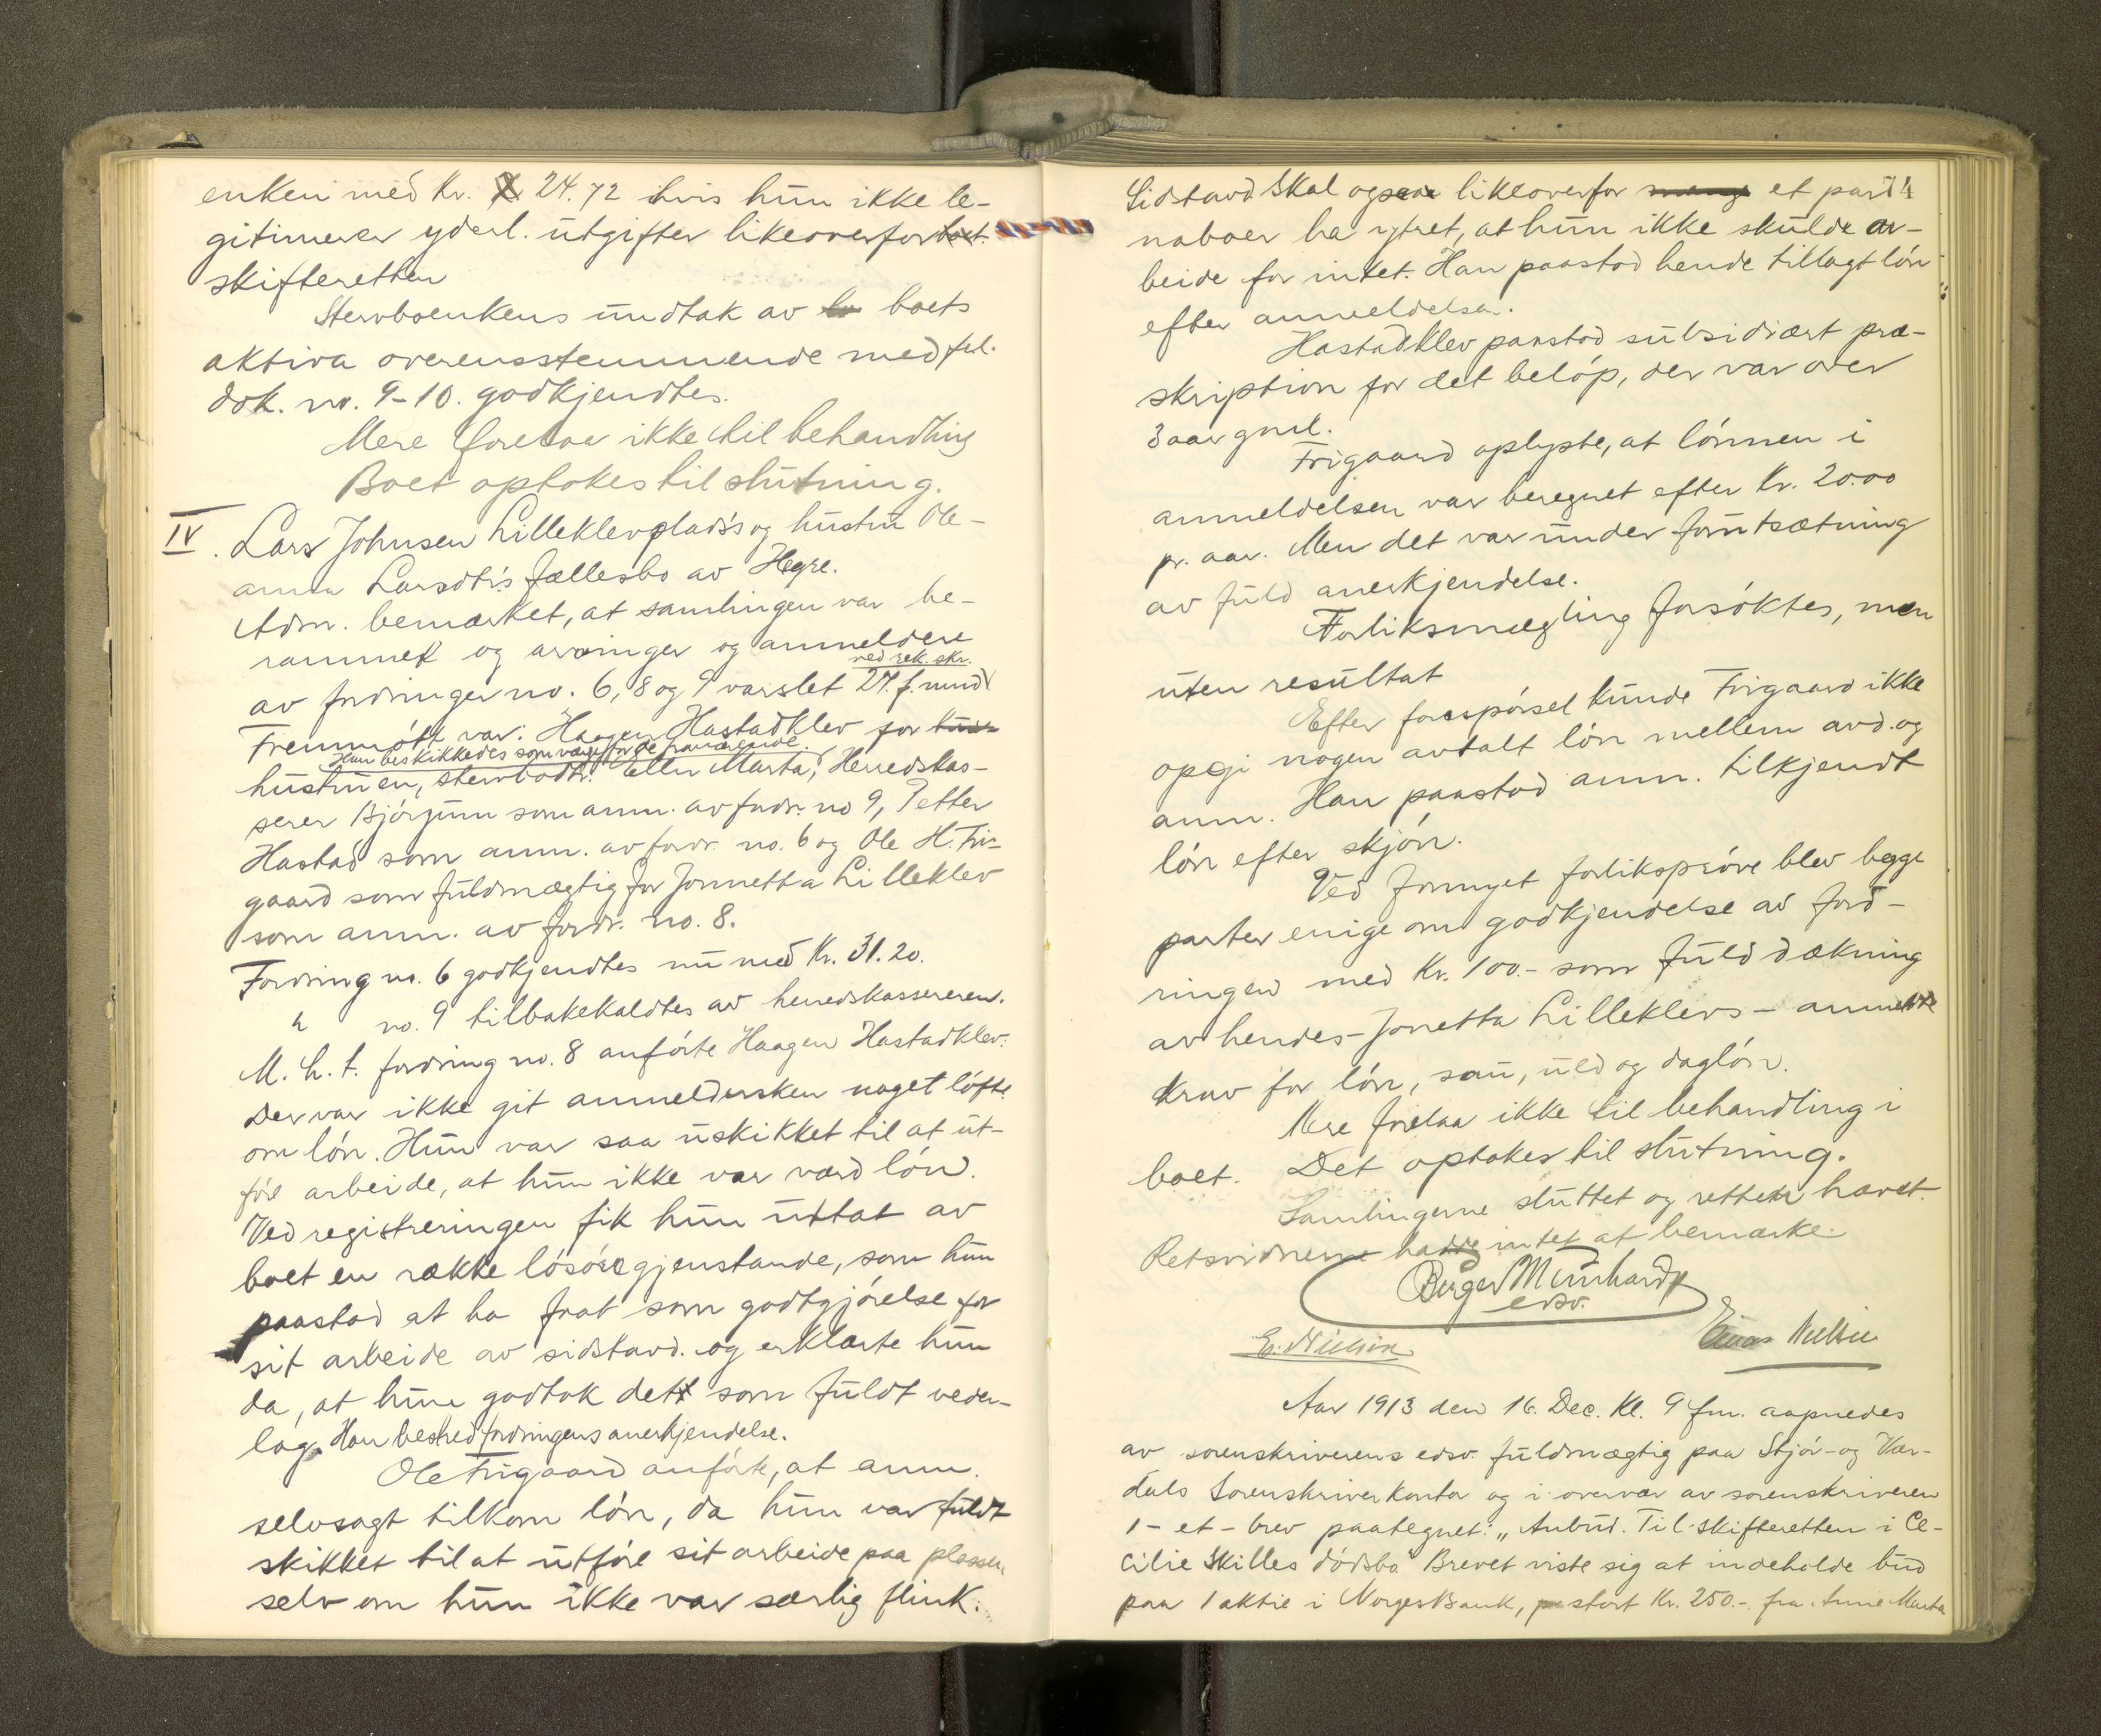 enken med Kr. 24.72 hvis hun ikke le-
gitimerer yderl. utgifter likeoverfor boet.
skifteretten
Stervboenkens undtak av bo boets
aktiva overensstemmende med frl.
dok. no. 9-10. godkjendtes.
Mere forelaa ikke til behandling
Boet optokes til slutning.
IV. Lars Johnsen Lilleklevplads's og hustru Ole-
anna Larsdtr's fællesbo av Hegre.
Adm. bemærket, at samlingen var be-
rammet og arvinger og anmeldere
ved rek. skr.
av fordringer no. 6, 8 og 9 varslet 27. f. mnd.
Fremmøtt var: Haagen Hastadklev for
Han beskikkedes som værge for de fraværende.
hustruen, stervbodtr. Ellen Marta, Herredskas-
serer Bjørgum som anm. av fordr. no 9, Petter
Hastad som anm. av fordr. no. 6 og Ole H. Fri-
gaard som fuldmægtig for Jonnetta Lilleklev
som anm. av fordr. no. 8.
Fordring no. 6 godkjendtes nu med Kr. 31.20.
" no. 9 tilbakekaldtes av herredskassereren.
M. h. t. fordring no. 8 anførte Haagen Hastadklev:
Der var ikke git anmeldersken noget løfte
om løn. Hun var saa uskikket til at ut-
føre arbeide, at hun ikke var værd løn.
Ved registreringen fik hun uttat av
boet en række løsøregjenstande, som hun
paastod at ha faat som godtgjørelse for
sit arbeide av sidstavd. og erklærte hun
da, at hun godtok dett som fuldt veder-
lag. Han bestred fordringens anerkjendelse.
Ole Frigaard anførte, at anm.
selvsagt tilkom løn, da hun var fuldt
skikket til at utføre sit arbeide paa plassen,
selv om hun ikke var særlig flink.
Sidstavd skal ogsaa likeoverfor mange et par
naboer ha ytret, at hun ikke skulde ar-
beide for intet. Han paastod hende tillagt løn
efter anmeldelsen.
Hastadklev paastod subsidiært præ-
skription for det beløp, der var over
3 aar gml.
Frigaard oplyste, at lønnen i
anmeldelsen var beregnet efter Kr. 20.00
pr. aar. Men det var under forutsætning
av fuld anerkjendelse.
Forliksmægling forsøktes, men
uten resultat
Efter forespørsel kunde Frigaard ikke
opgi nogen avtalt løn mellem avd. og
anm. Han paastod anm. tilkjendt
løn efter skjøn.
Ved fornyet forliksprøve blev begge
parter enige om godkjendelse av ford-
ringen med Kr. 100.- som fuld dækning
av hendes - Jonetta Lilleklevs - anmeldte
krav for løn, sau, uld og dagløn.
Mere forelaa ikke til behandling i
boet. Det optokes til slutning.
Samlingerne sluttet og retten hævet.
Retsvidnerne hadde intet at bemærke.
Birger Meinhardt
edsv.
E. Nielsen
Einar Nielsen
Aar 1913 den 16. Dec. Kl. 9 fm. aapnedes
av sorenskriverens edsv. fuldmægtig paa Stjør- og Vær-
dals Sorenskriverkontor og i overvær av sorenskriveren
1 - et - brev paategnet: „Anbud. Til skifteretten i Ce-
cilie Skilles dødsbo" Brevet viste sig at indeholde bud
paa 1 aktie i Norges Bank, stort Kr. 250.-. fra Anne Marta